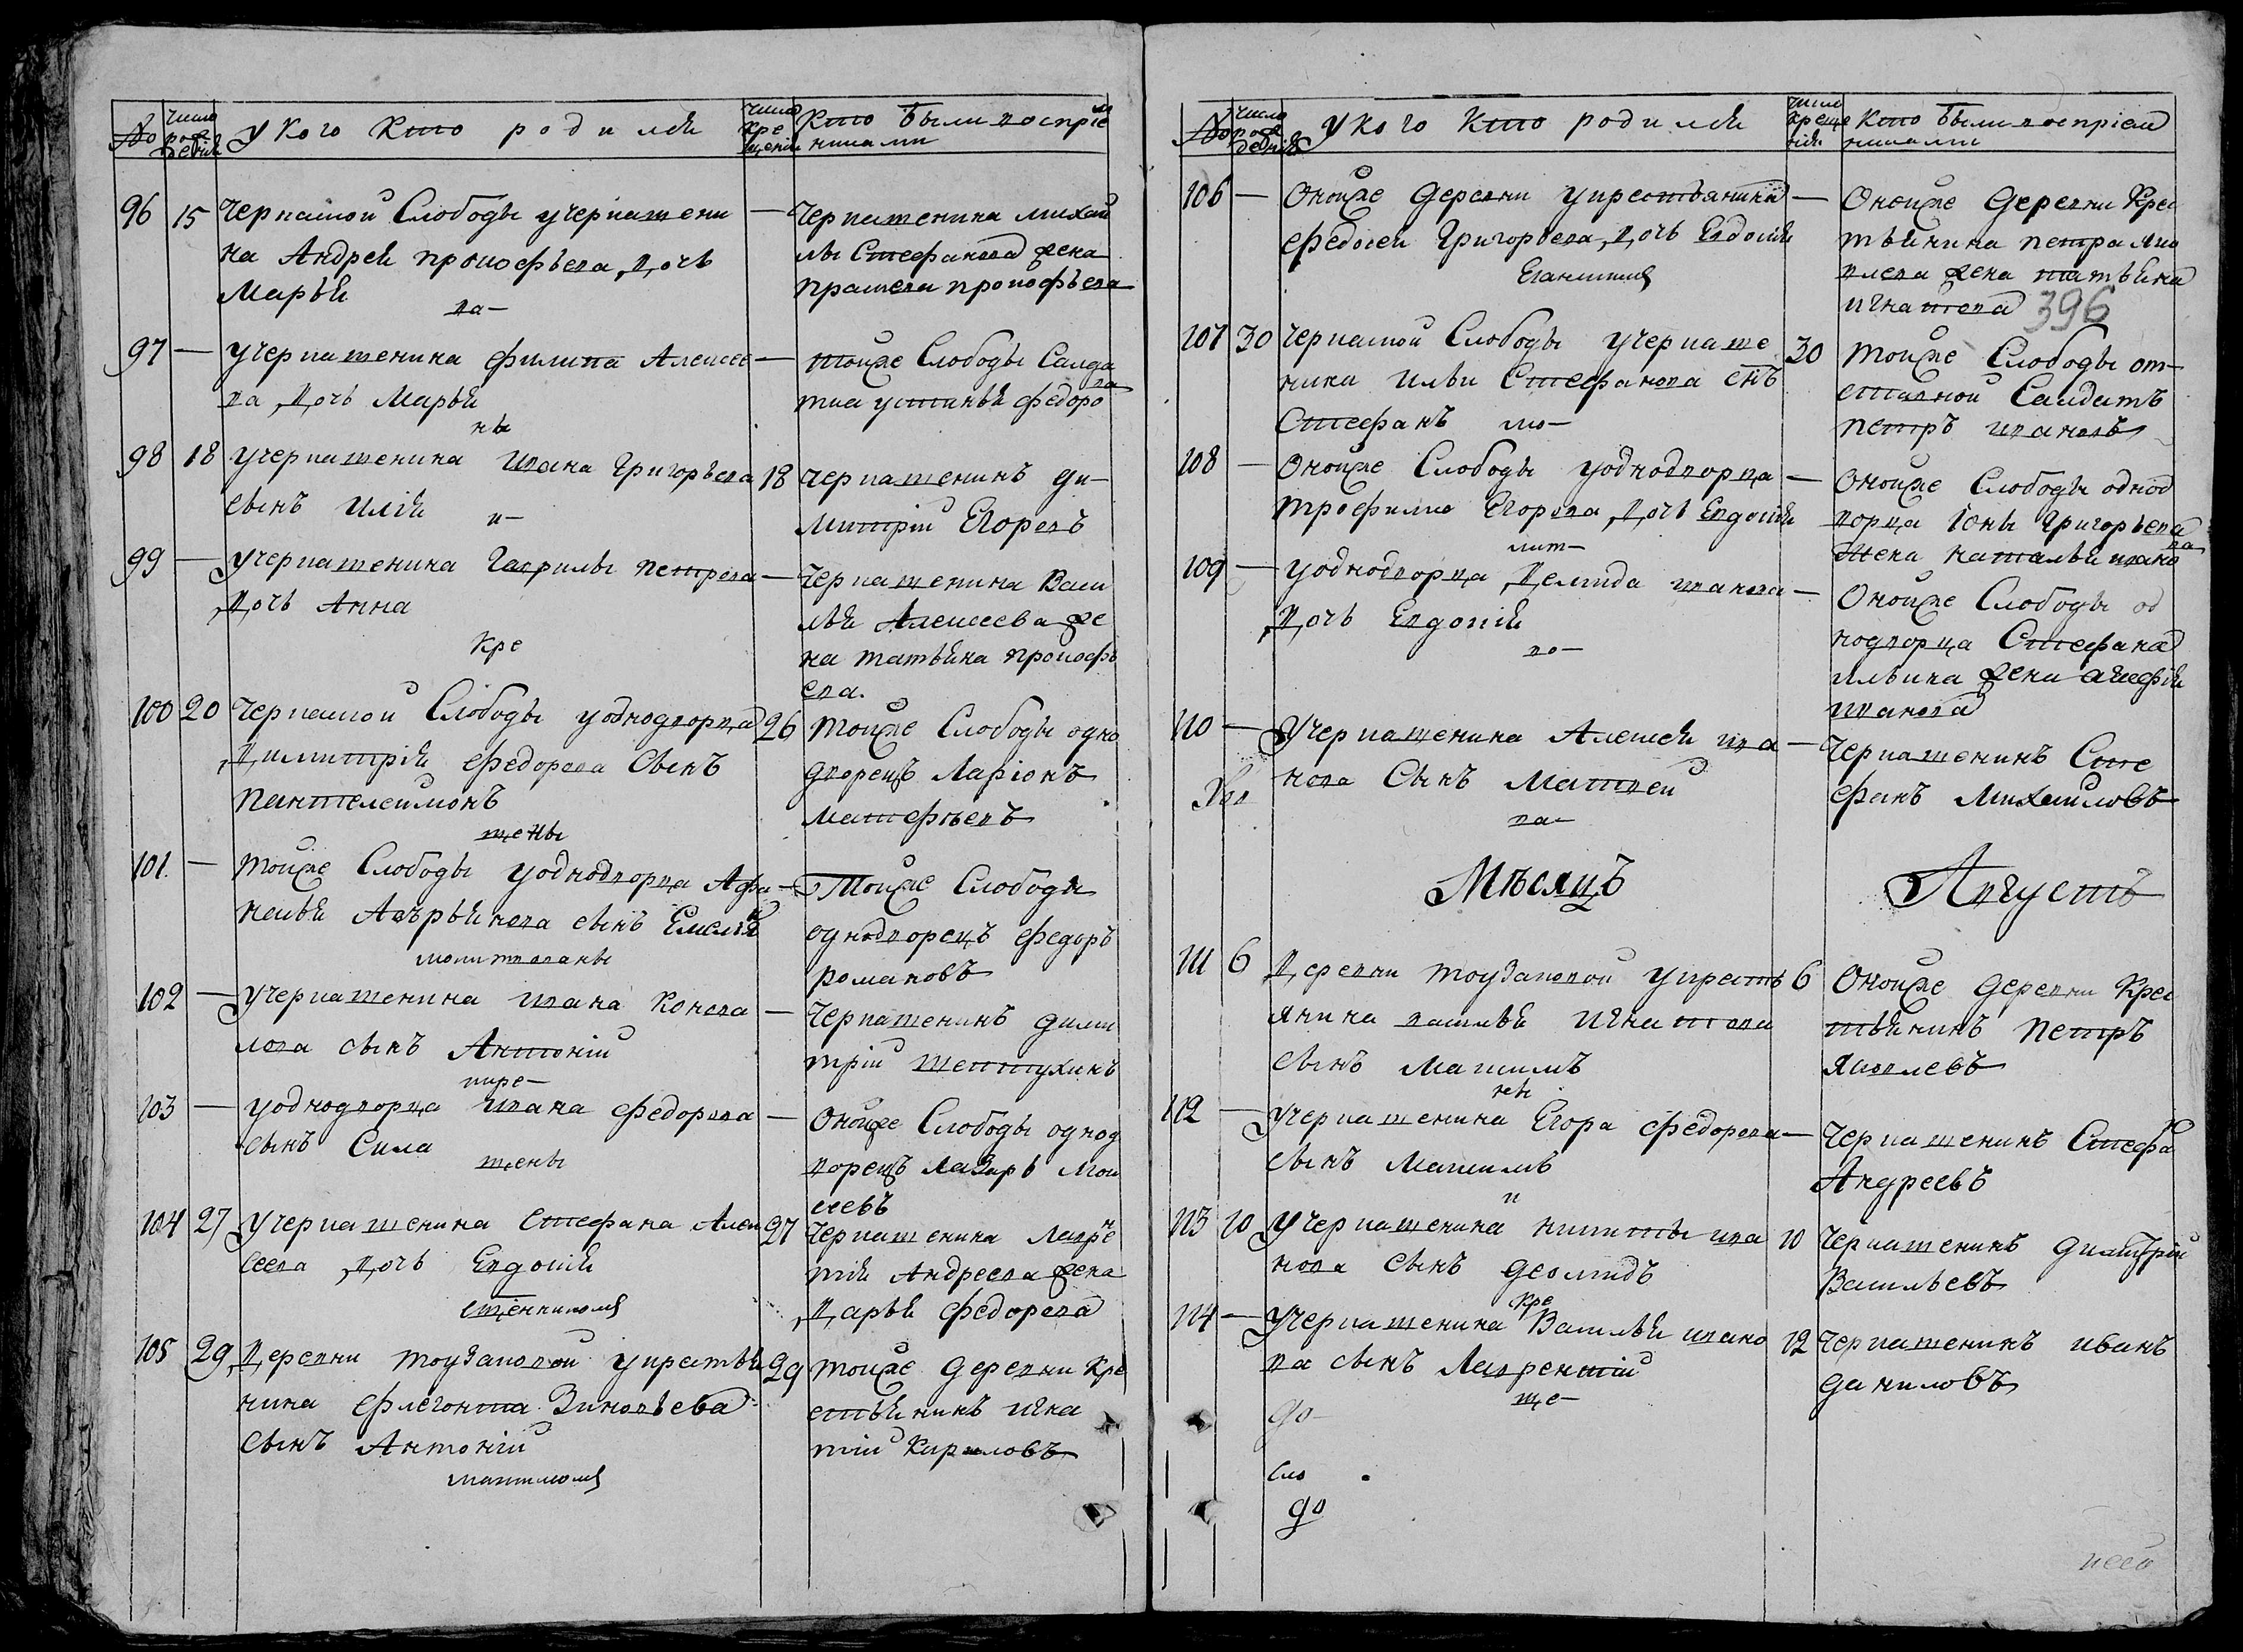 № число рождения У кого кто родился число крещения Кто были восприем
никами
96 15 Черкаской Слободы у черкашени
на Андрея прокофьева дочь
Марья
ва
— Черкашенина михаи
лы Стефанова жена
прасковья прокофьева
97 — у черкашенина филипа Алексее
ва дочь Марья
ны
— тоиже Слободы Салда
тка устинья федоро
ва
98 18 у черкашенина ивана Григорьева
сынъ илия
и
18 черкашенинъ ди
митрий Егоровъ
99 — у черкашенина Гаврилы петрова
дочь Анна
кре
— Черкашенина Васи
лья Алексеева же
на татьяна прокофь
ева.
100 20 Черкаской Слободы у однодворца
димитрия федорова Сынъ
пантелеимонъ
щены
26 тоиже Слободы одно
дворецъ Ларионъ
матфѣевъ
101. — тоиже Слободы у однодворца Афа
насья Аверьянова сынъ Емелья
н
молитвованы
— Тоиже Слободы
однодворецъ федоръ
романовъ
102 — у черкашенина ивана Конова
лова сынъ Антоний
— Черкашенинъ дими
трий шептухинъ
103 — у однодворца ивана федорова
сынъ Сила
щены
— Оноиже Слободы однод
ворецъ Лазарь мои
сеевъ
104 27 у черкашенина стефана Алек
сеева дочь Евдокия
священникомъ
27 Черкашенина Лавре
н
тия Андреева жена
дарья федорова
105 29 деревни тоузаковой у крестья
нина флегонта Зиновьева
Сынъ Антоний
29 тоиже деревни кре
стьянинъ игна
тий Кириловъ
№ число рождения У кого кто родился число крещения Кто были восприем
никами
106 — Оноиже деревни у крестьянина
федосея Григорьева дочь Евдокия
— Оноиже деревни Крес
тьянина петра яко
влева жена татьяна
игнатова
396
107 30 черкаской Слободы у черкаше
нина ильи Стефанова снъ
Стефанъ
30 тоиже Слободы от
ставной Салдатъ
петръ ивановъ
108 — Оноиже Слободы у однодворца
трофима Егорова дочь Евдокия
лит
— Оноиже Слободы однод
ворца ионы Григорьева
жена наталья ивано
ва
109 — у однодворца демида иванова
дочь Евдокия
во
— Оноиже Слободы од
нодворца Стефана
ильина жена агафия
иванова
110 — у черкашенина Алексея ива
нова Сынъ Матвей
ва
— Черкашенинъ Сте
фанъ Михаиловъ
Мѣсяцъ Августъ
111 6 деревни тоузаковой у кресть
янина василья игнатова
сынъ Максимъ
ны
6 Оноиже деревни Крес
тьянинъ петръ
яковлевъ
112 — у черкашенина Егора федорова
сынъ Максимъ
и
— черкашенинъ Стефа
н
Андреевъ
113 10 у черкашенина никиты ива
нова сынъ диомидъ
кре
10 Черкашенинъ димитрий
Васильевъ
114 — у черкашенина Василья ивано
ва сынъ Лаврентий
ще
12 черкашенинъ иванъ
даниловъ
до
сло
до